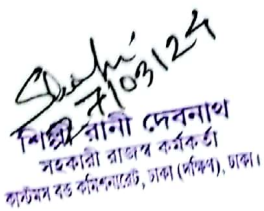 27/03/24
শিপ্রা রানী দেবনাথ
সহকারী রাজস্ব কর্মকর্তা
কাস্টমস বন্ড কমিশনারেট, ঢাকা (দক্ষিণ), ঢাকা।